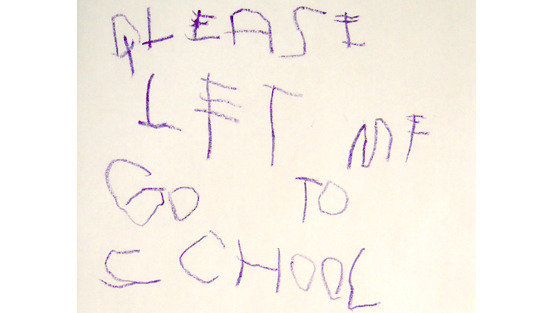 PLEASE
LET ME
GO TO
SCHOOL